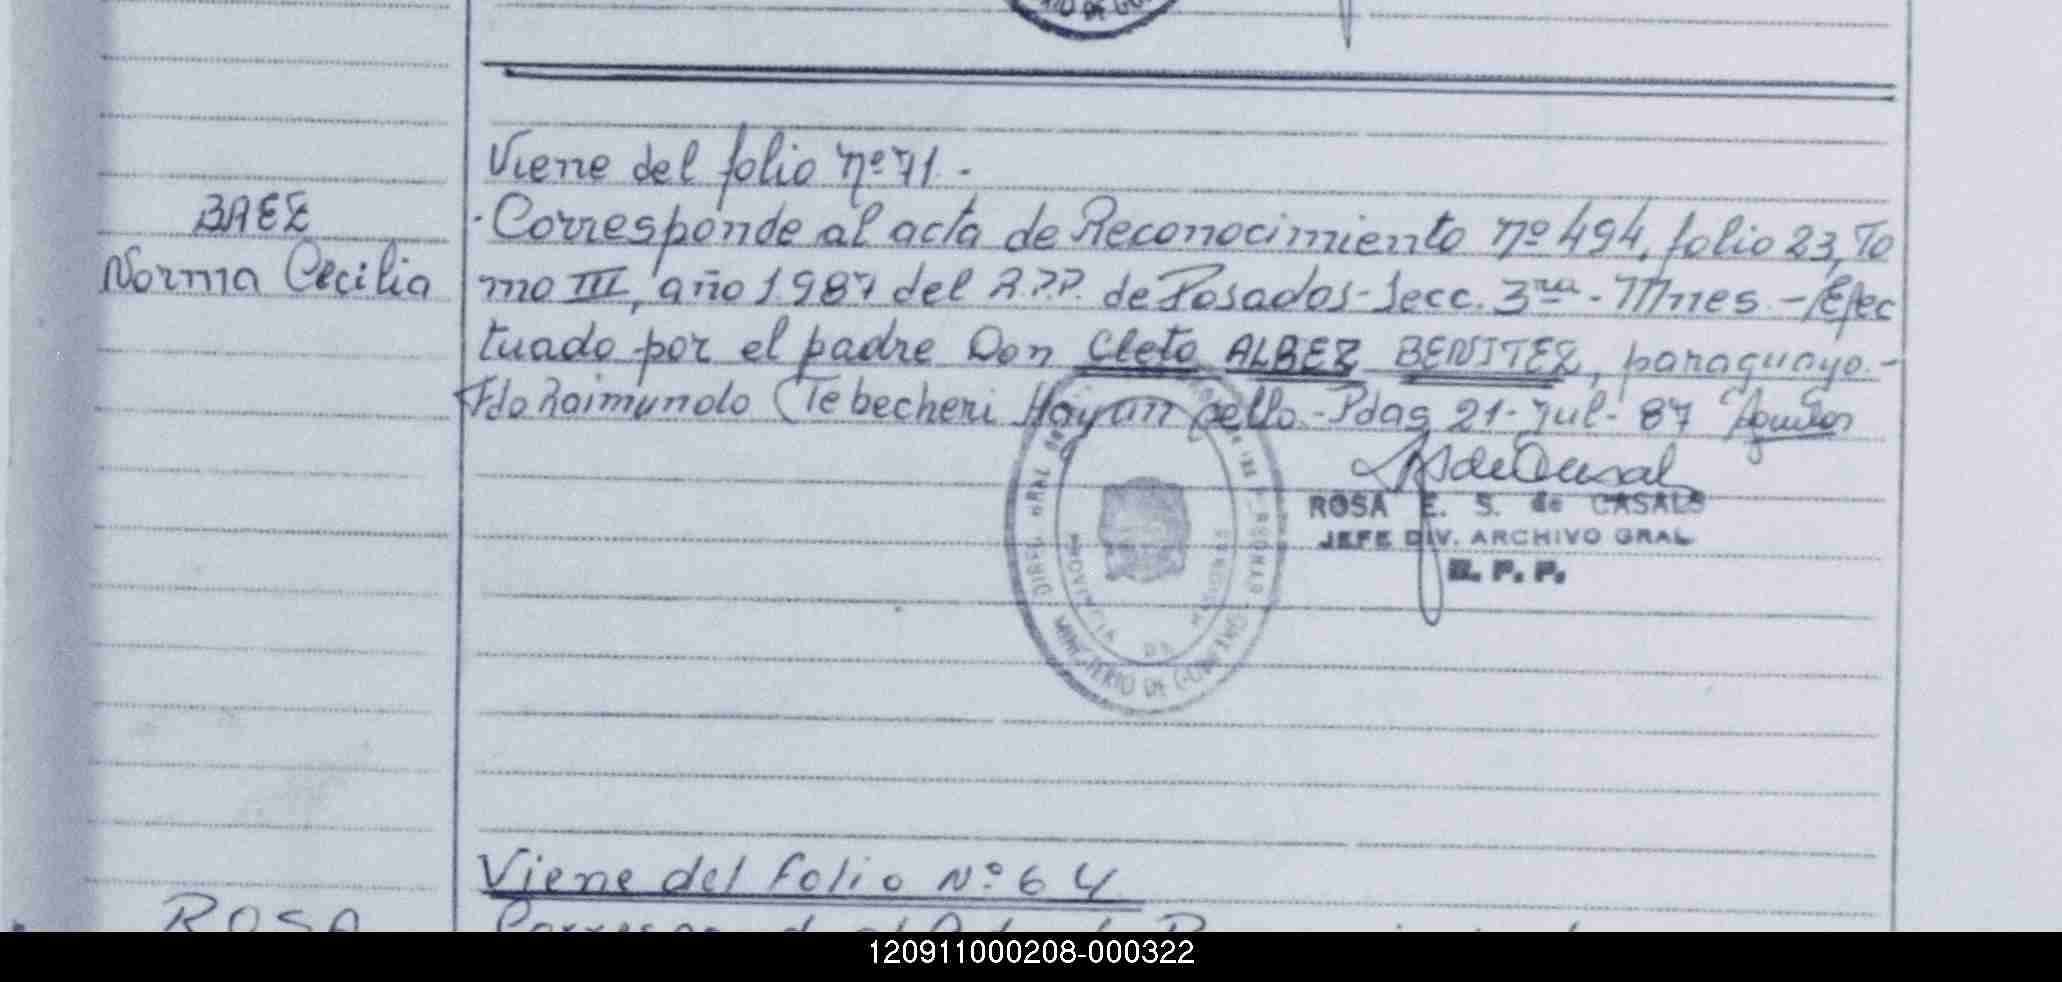 Viene del folio nº 71.-
BAEZ
Norma Cecilia
-Corresponde al acta de Reconocimiento nº 494, folio 23, To
mo III, año 1987 del R.P.P. de Posadas-Secc. 3ra.- Mnes.-Efec
tuado por el padre Don Cleto ALBEZ BENITEZ, paraguayo.-
Fdo Raimundo Tebecheri Hay un sello.-Pdas 21-Jul-87
ROSA E. S. de CASALS
JEFE DIV. ARCHIVO GRAL
R. P. P.
PROVINCIA DE MISIONES
MINISTERIO DE GOBIERNO
Viene del Folio Nº 64
ROSA
120911000208-000322